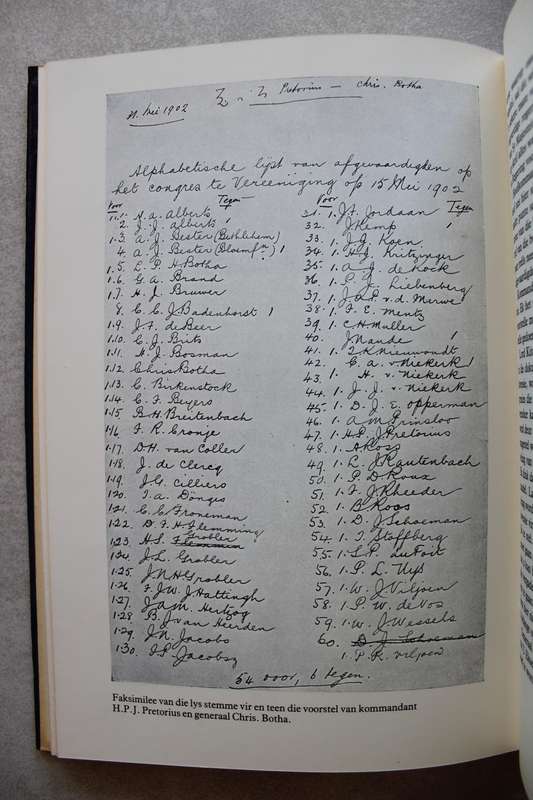 31. Mei 1902
Pretorius — Chris. Botha
Alphabetische lijst van afgevaardigden op
het congres te Vereeniging op 15 Mei 1902
Voor Tegen
1. 1. H. A. Alberts
2. J. J. Alberts '
1. 3. A. J. Bester (Bethlehem)
4 A. J. Bester (Bloemfn) '
1. 5. L. P. H. Botha
1. 6. G. A. Brand
1. 7. H. J. Bruwer
8. C. C. J. Badenhorst '
1. 9. J. F. de Beer
1. 10. C. J. Brits
1. 11. H. J. Bosman
1. 12 Chris Botha
1. 13. C. Birkenstock
1. 14. C. F. Beyers
1. 15 B. H. Breitenbach
1. 16. F. R. Cronje
1. 17. D. H. van Coller
1. 18. J. de Clercq
1. 19. J. G. Cilliers
1. 20. T. A. Dönges
1. 21. C. C. Froneman
1. 22. D. F. H. Flemming
1. 23. H. S. Grobler
1. 24. J. L. Grobler
1. 25. J. N. H. Grobler
1. 26. F. J. W. J. Hattingh
1. 27. J. B. M. Hertzog
1. 28 B. J. van Heerden
1. 29. J. N. Jacobs
1. 30. Jacobsz
Voor Tegen
31. 1. J. F. Jordaan
32. J Kemp '
33. 1. J. J. Koen
34. 1. H. J. Kritzinger
35. 1. A. J. de Kock
36. 1. P. J. Liebenberg
37. 1. J. A. P. v. d. Merwe
38. 1. F. E. Mentz
39. 1. C H Muller
40. J Naude '
41. 1. Nieuwoudt
42. C. A. v. Niekerk '
43. 1. H. v. Niekerk
44. 1. J. J. v. Niekerk
45. 1. D. J. E. Opperman
46. 1. A M Prinsloo
47. 1. H. P. J. Pretorius
48. 1. A Ross
49. 1. L. J. Rautenbach
50. 1. P. D. Roux
51. 1. F. J. Rheeder
52. 1. B Roos
53. 1. D. J. Schoeman
54. 1. T. Stoffberg
55. 1. S. P. du Toit
56. 1. P. L. Uys
57. 1. W. J. Viljoen
58. 1. P. W. de Vos
59. 1. W. J. Wessels
60. D. J. Schoeman
1. P. R. Viljoen
54 voor, 6 tegen.
Faksimilee van die lys stemme vir en teen die voorstel van kommandant
H.P.J. Pretorius en generaal Chris. Botha.